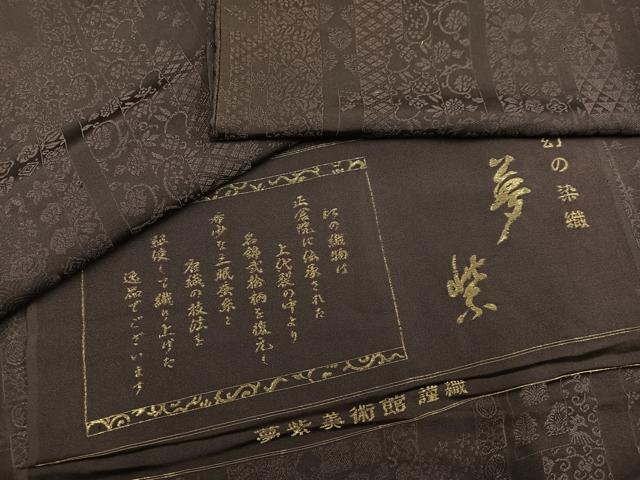 幻の染織
夢紫
この織物は
正倉院に伝承された
上代裂の中より
名錦弐拾柄を復元し
希少な三眠蚕糸と
唐織の技法を
駆使して織り上げた
逸品でございます
夢紫美術館謹織